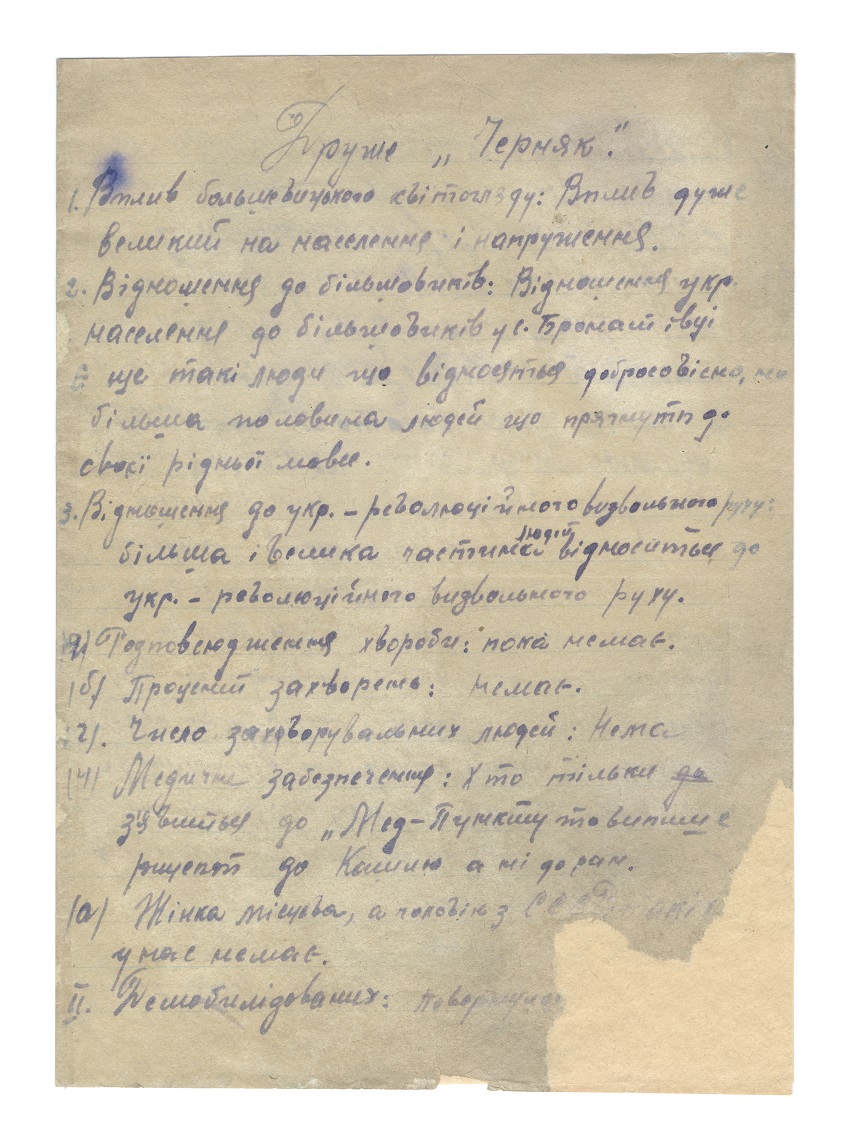 Друже „Черняк".
1. Вплив большевицького світогляду: Вплив дуже
великий на населення і напруження.
2. Відношення до більшовиків: Відношення укр.
населення до більшовиків у с.
є ще такі люди що відносяться добросовісно, но
більша половина людей що прягнути до
своєї рідньої мови.
3. Відношення до укр. – революційного визвольного руху:
більша і велика частинка людей відноситься до
укр. – революційного визвольного руху.
а) Розповсюдження хвороби: пока немає.
(б) Процент захворень: немає.
(2). Число захворувальних людей: Нема
(4) Медичне забезпечення: Хто тільки до
зявиться до „Мед–Пункту то випише
рицепт до Калию а ні до ран.
(а) Жінка місцева, а чоловік з СССР
у нас немає.
II. Демобилідованих: